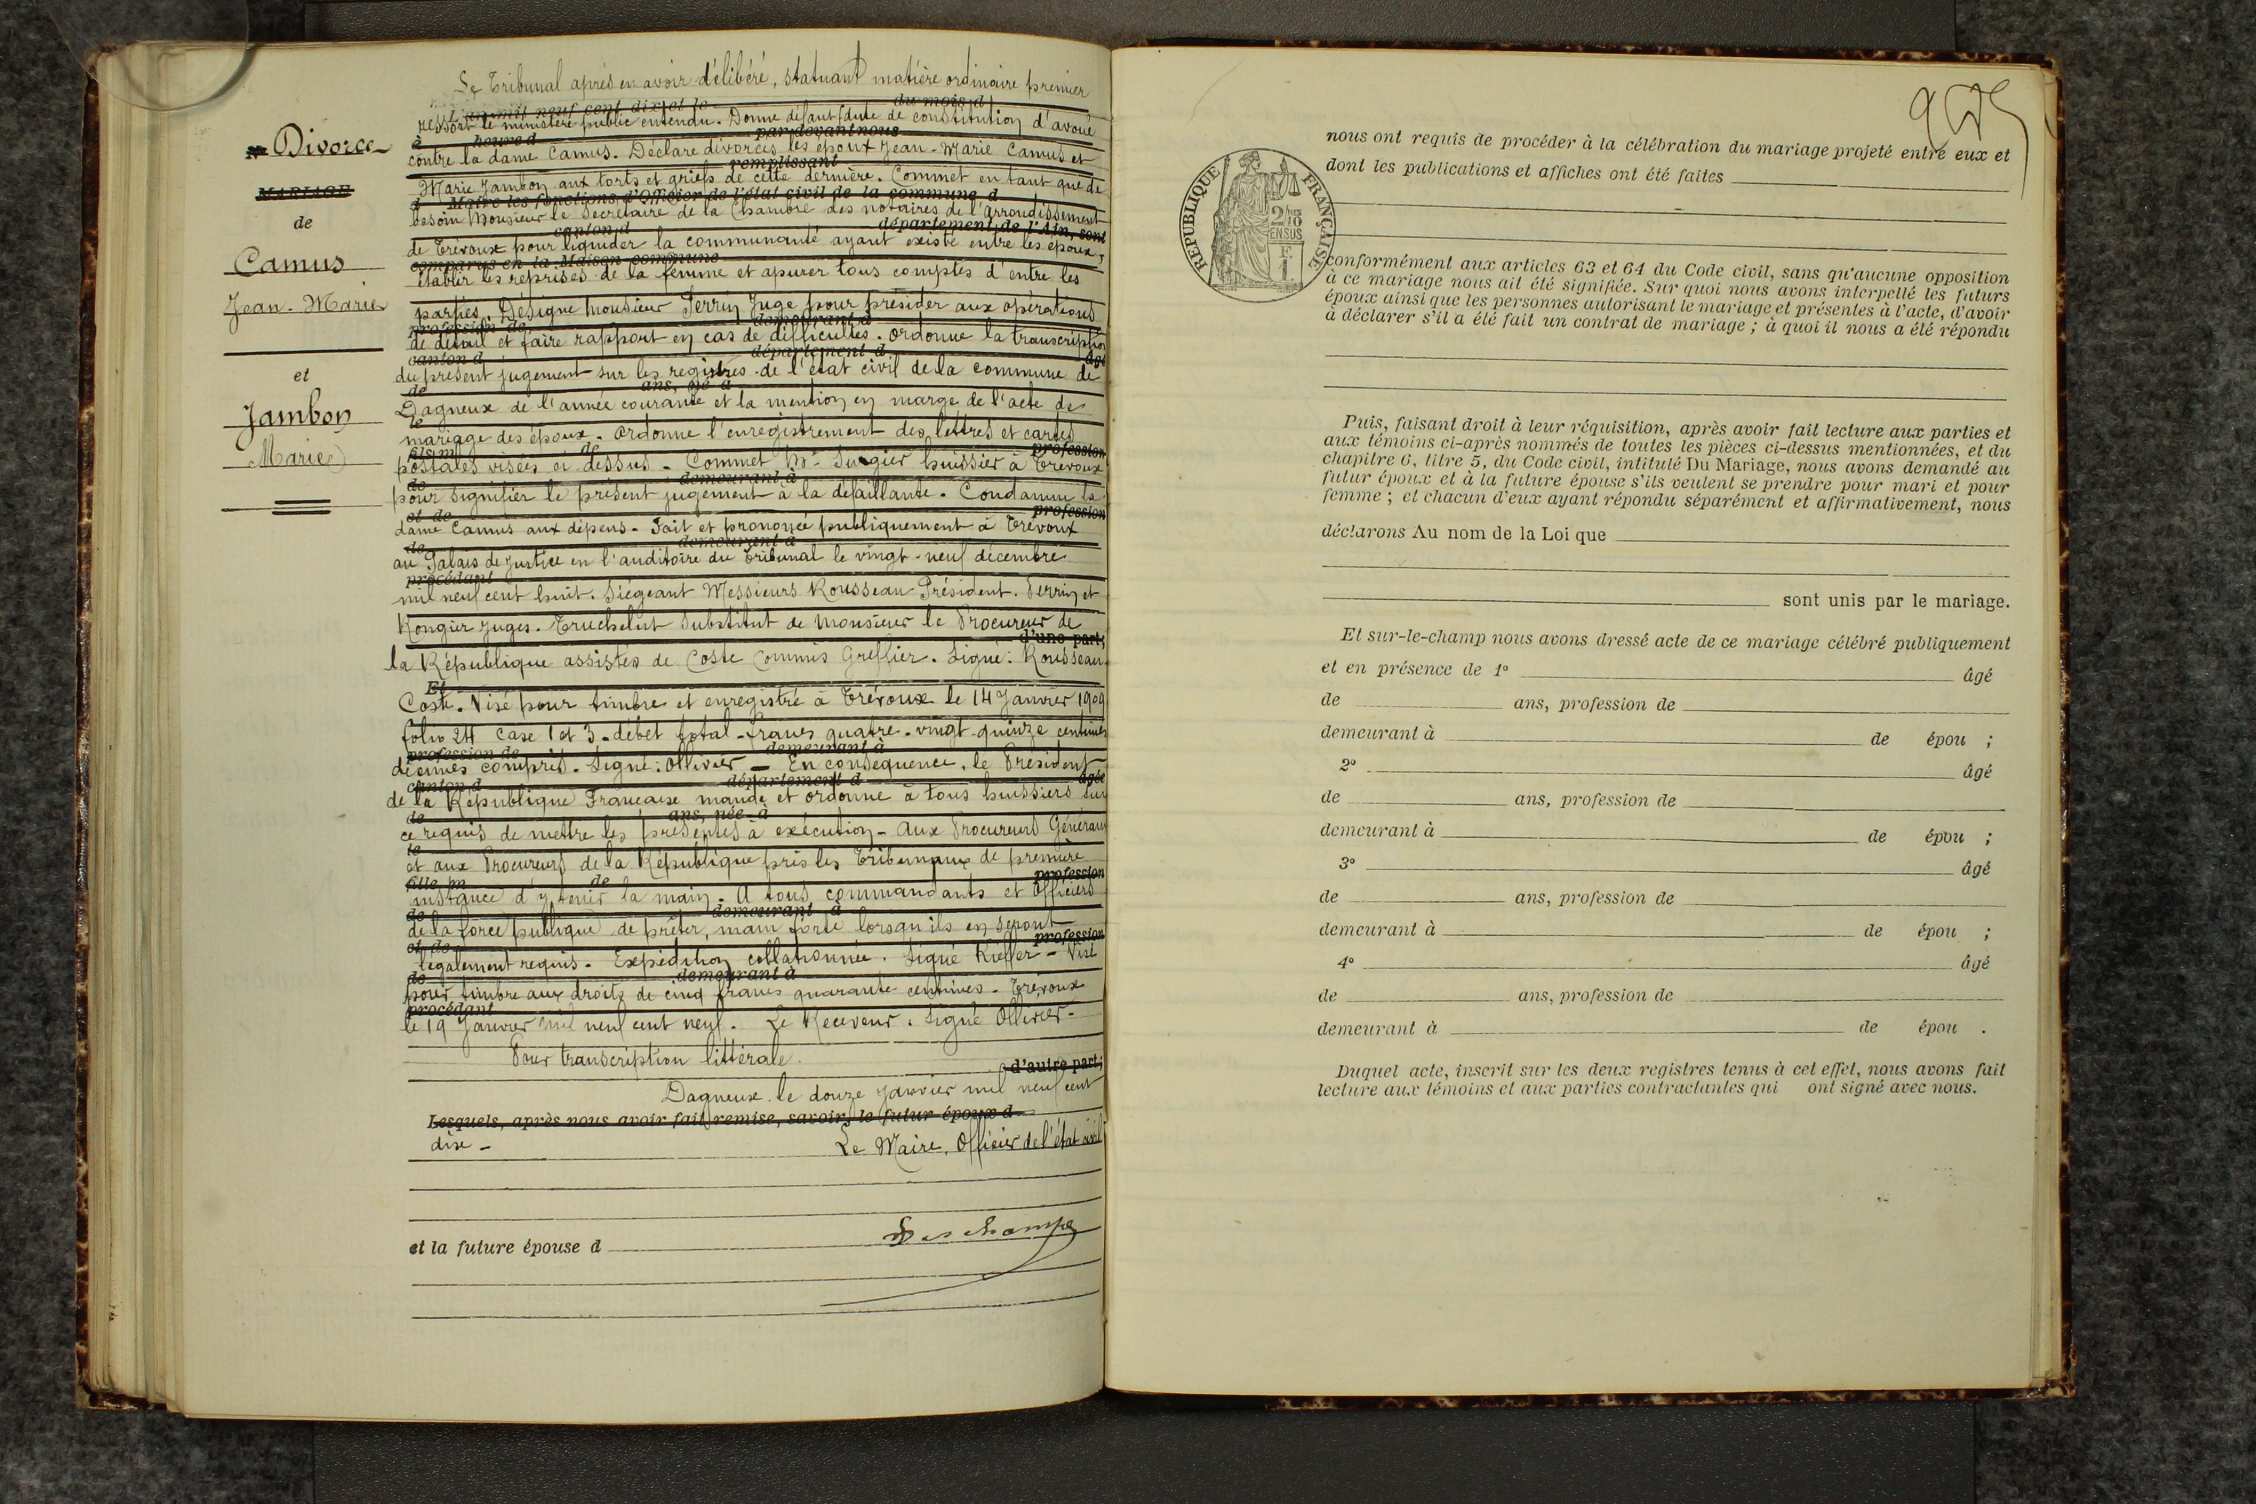 Divorce
MARIAGE
de
Camus
Jean-Marie
et
Jambon
Marie
Le Tribunal après en avoir délibéré, statuant matière ordinaire premier
l'an mil neuf cent dix et le du mois d
ressort le ministère public entendu. Donne défaut faute de constitution d'avoué
à heure d par devant nous
contre la dame Camus. Déclare divorcés les époux Jean-Marie Camus et
remplissant
Marie Jambon aux torts et griefs de cette dernière. Commet en tant que de
d Maire les fonctions d'Officier de l'état civil de la commune d
besoin Monsieur le Secrétaire de la Chambre des notaires de l'arrondissement
canton d département de l'Ain, sont
de Trévoux pour liquider la communauté ayant existé entre les époux,
comparus en la Maison commune
établir les reprises de la femme et apurer tous comptes d'entre les
parties. Désigne Monsieur Perrin Juge pour présider aux opérations
profession de demeurant à
de détail et faire rapport en cas de difficultés. Ordonne la transcription
canton d département d âgé
du présent jugement sur les registres de l'état civil de la commune de
de ans, né à
Dagneux de l'année courante et la mention en marge de l'acte de
le
mariage des époux. Ordonne l'enregistrement des lettres et cartes
fils m de profession
postales visées ci dessus. Commet Me Surgier huissier à Trévoux
de demeurant à
pour signifier le présent jugement à la défaillante. Condamne la
et de profession
dame Camus aux dépens. Fait et prononcé publiquement à Trévoux
de demeurant à
au Palais de Justice en l'auditoire du Tribunal le vingt-neuf décembre
procédant
mil neuf cent huit. Siégeant Messieurs Rousseau Président. Perrin et
Rongier Juges. Truchelut Substitut de Monsieur le Procureur de
d'une part;
la République assistés de Coste Commis Greffier. Signé: Rousseau
Et
Coste. Visé pour timbre et enregistré à Trévoux le 14 Janvier 1909
folio 24 case 1 et 3. débet total francs quatre-vingt-quinze centimes
profession de demeurant à
décimes compris. Signé: Ollivier – En conséquence, le Président
canton d département d âgée
de la République Française mande et ordonne à tous huissiers sur
de ans, née à
ce requis de mettre les présentes à exécution – Aux Procureurs Généraux
le
et aux Procureurs de la République près les Tribunaux de première
fille m de profession
instance d'y tenir la main. A tous commandants et Officiers
de demeurant à
de la force publique de prêter main forte lorsqu'ils en seront
et de profession
légalement requis. Expédition collationnée. Signé Kieffer – Visé
de demeurant à
pour timbre aux droits de cinq francs quarante centimes. Trévoux
procédant
le 19 Janvier mil neuf cent neuf. Le Receveur. Signé Ollivier.
Pour transcription littérale.
d'autre part;
Dagneux le douze janvier mil neuf cent
Lesquels, après nous avoir fait remise, savoir, le futur époux d
dix – Le Maire, Officier de l'état civil
Deschamps
et la future épouse d
nous ont requis de procéder à la célébration du mariage projeté entre eux et
dont les publications et affiches ont été faites
RÉPUBLIQUE FRANÇAISE
2/10
EN SUS
F
1
conformément aux articles 63 et 64 du Code civil, sans qu'aucune opposition
à ce mariage nous ait été signifiée. Sur quoi nous avons interpellé les futurs
époux ainsi que les personnes autorisant le mariage et présentes à l'acte, d'avoir
à déclarer s'il a été fait un contrat de mariage ; à quoi il nous a été répondu
Puis, faisant droit à leur réquisition, après avoir fait lecture aux parties et
aux témoins ci-après nommés de toutes les pièces ci-dessus mentionnées, et du
chapitre 6, titre 5, du Code civil, intitulé Du Mariage, nous avons demandé au
futur époux et à la future épouse s'ils veulent se prendre pour mari et pour
femme ; et chacun d'eux ayant répondu séparément et affirmativement, nous
déclarons Au nom de la Loi que
sont unis par le mariage.
Et sur-le-champ nous avons dressé acte de ce mariage célébré publiquement
et en présence de 1° âgé
de ans, profession de
demeurant à de épou ;
2° âgé
de ans, profession de
demeurant à de épou ;
3° âgé
de ans, profession de
demeurant à de épou ;
4° âgé
de ans, profession de
demeurant à de épou .
Duquel acte, inscrit sur les deux registres tenus à cet effet, nous avons fait
lecture aux témoins et aux parties contractantes qui ont signé avec nous.